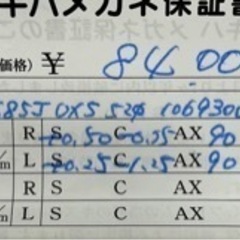 キハメガネ保証書
価格) ¥ 8400
585J OXS 52φ 1069300
R S +0.50 C -0.55 AX 90
/m L S +0.25 C -1.25 AX 90
R S C AX
/m L S C AX